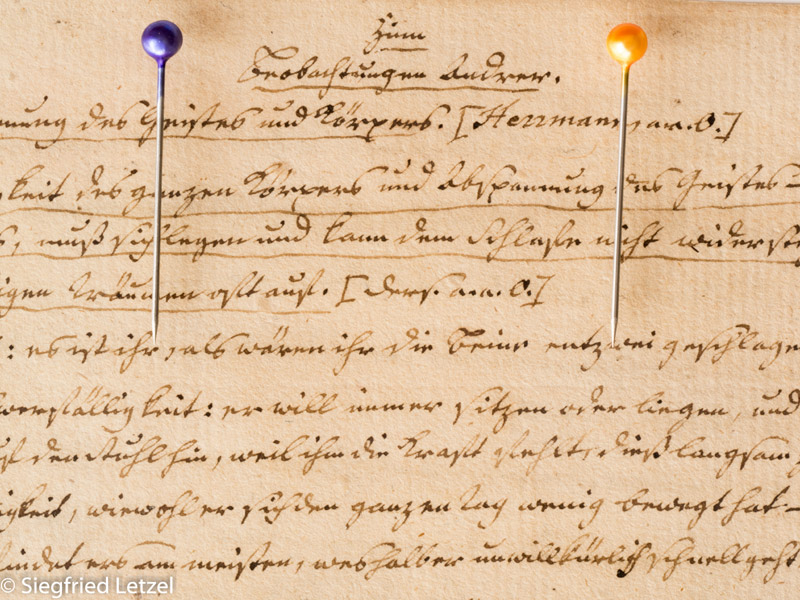 Zinn
Beobachtungen Andrer.
nnung des Geistes und Körpers. [Herrmann, a.a.O.]
gkeit des ganzen Körpers und Abspannung des Geistes-
s, muß sich legen und kann dem Schlafe nicht widerste
igen Träumen oft auf. [Ders. a.a.O.]
: es ist ihr, als wären ihr die Beine entzwei geschlage
werfälligkeit: er will immer sitzen oder liegen, und
uf den Stuhl hin, weil ihm die Kraft fehlt, dieß langsam z
igkeit, wiewohl er sich den ganzen Tag wenig bewegt hat-
findet ers am meisten, weshalber unwillkürlich schnell geht,
© Siegfried Letzel